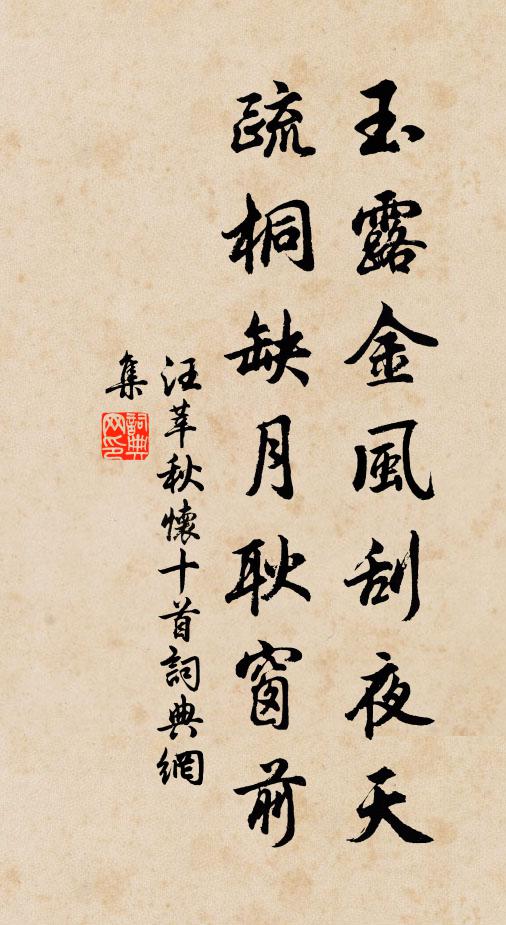 玉露金風刮夜天
疏桐缺月耿窗前
汪莘秋懷十首詞典網
集
詞典
网印